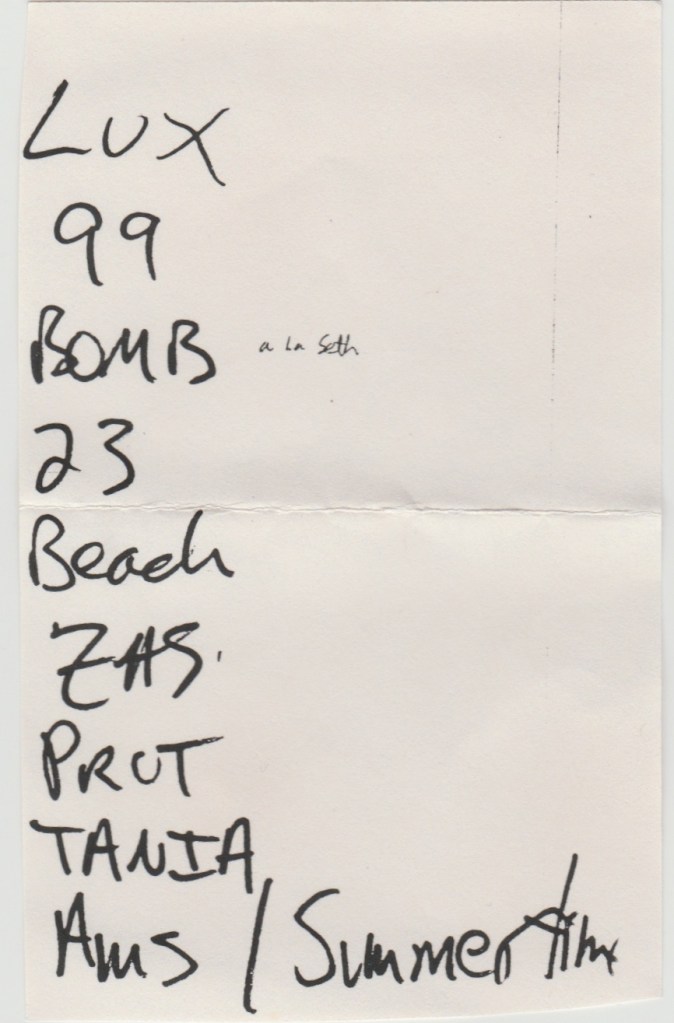 LUX
99
BOMB a la Seth
23
Beach
ZAS.
PRUT
TANIA
Ams / Summertime